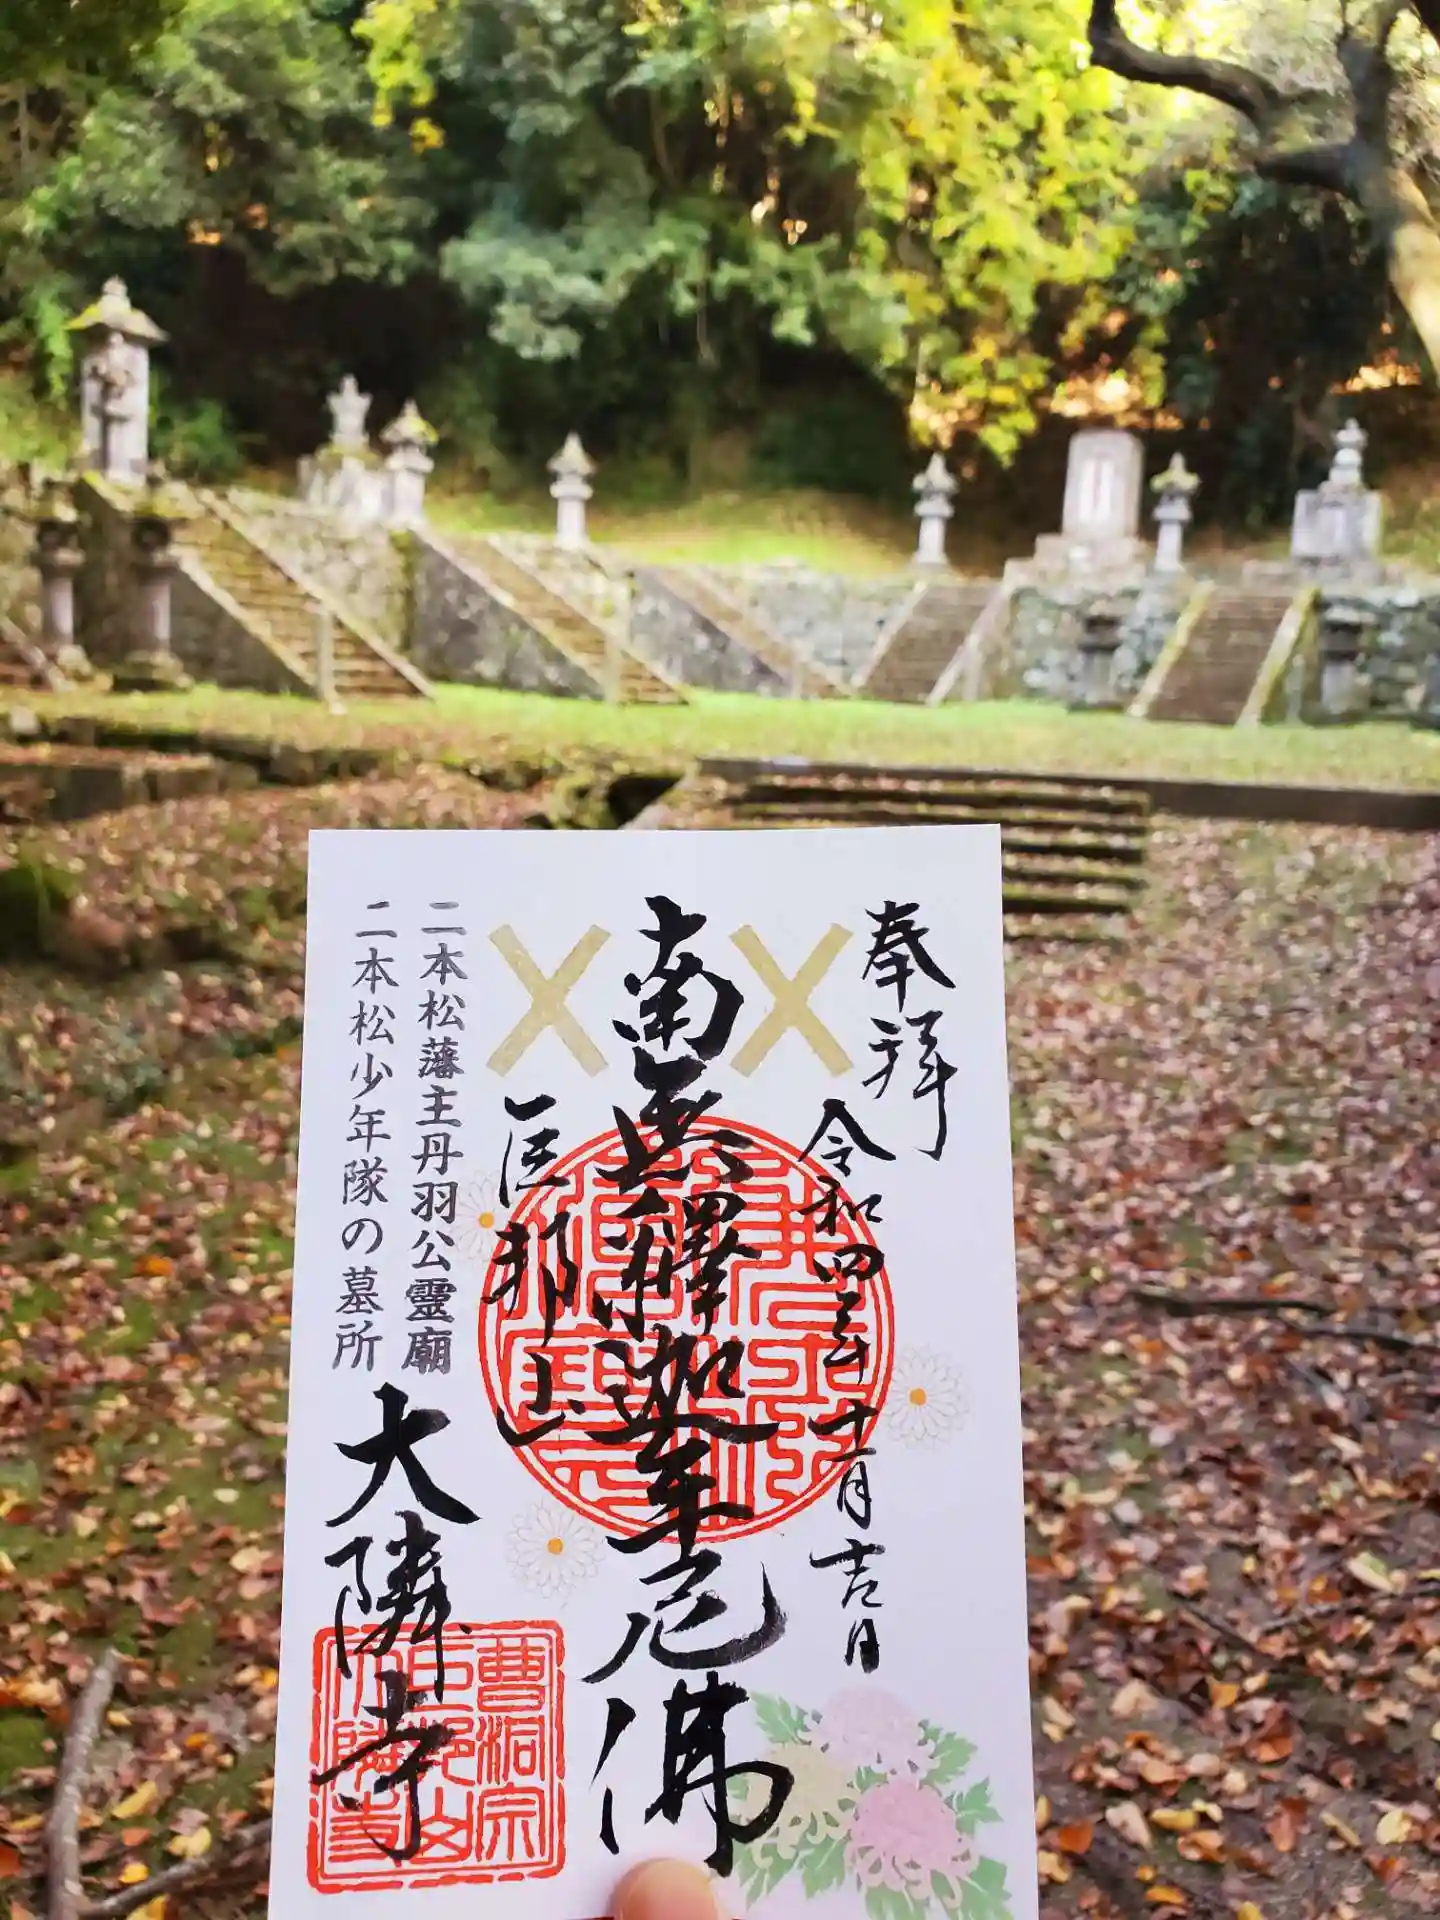 奉拜
令和四年十一月吉日
南無釋迦牟尼佛
巨邦山
二本松藩主丹羽公靈廟
二本松少年隊の墓所
大隣寺
曹洞宗
巨邦山
大隣寺